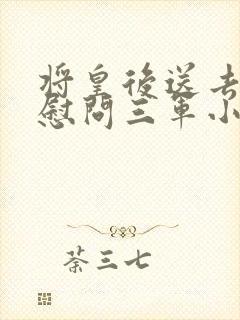 将皇後送去
慰問三軍小
荼三七